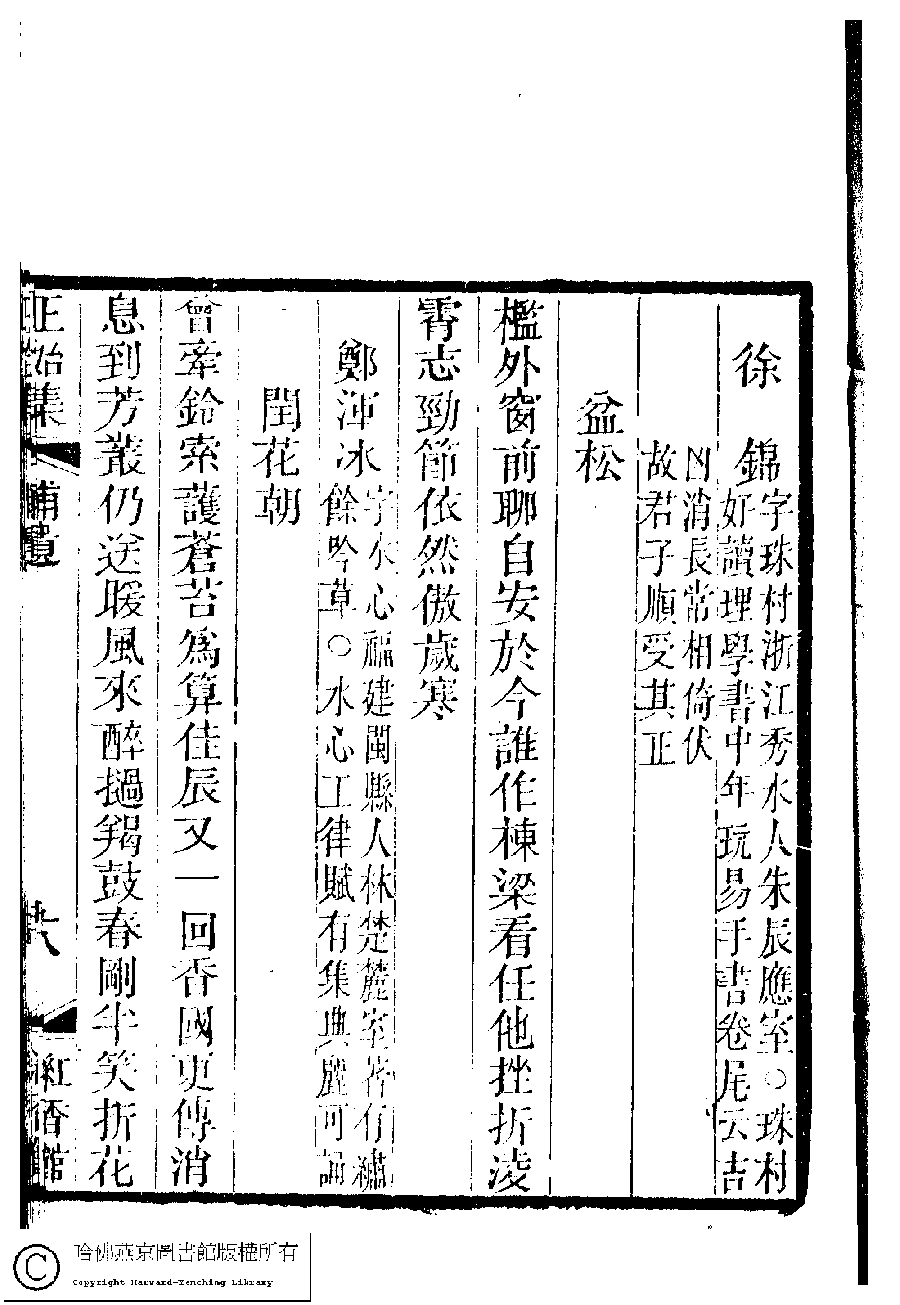 徐錦
字珠村浙江秀水人朱辰應室○珠村
好讀理學書中年玩易手書卷尾云吉
凶消長常相倚伏
故君子順受其正
盆松
檻外窗前聊自安於今誰作棟梁看任他挫折凌
霄志勁節依然傲歲寒
鄭渾冰
字水心福建閩縣人林楚麓室著有繡
餘吟草○水心工律賦有集典麗可誦
閏花朝
曾牽鈴索護蒼苔為算佳辰又一回香國更傳消
息到芳叢仍送暖風來醉撾羯鼓春剛半笑折花
正始集
補遺
紅香館
哈佛燕京圖書館版權所有
Copyright Harvard-Yenching Library